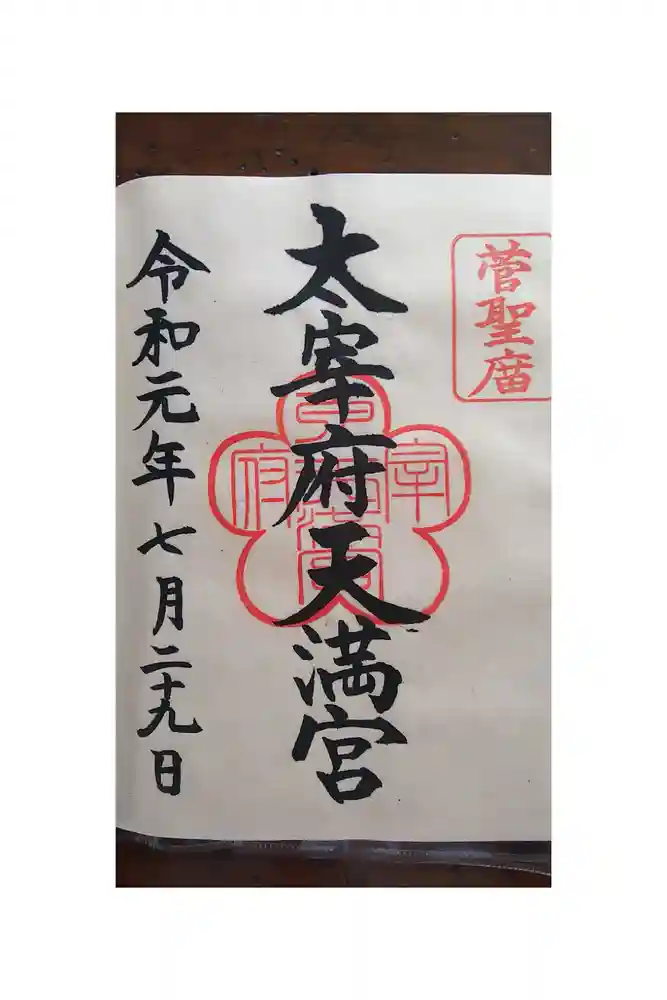 菅聖庿
太宰府天満宮
令和元年七月二十九日